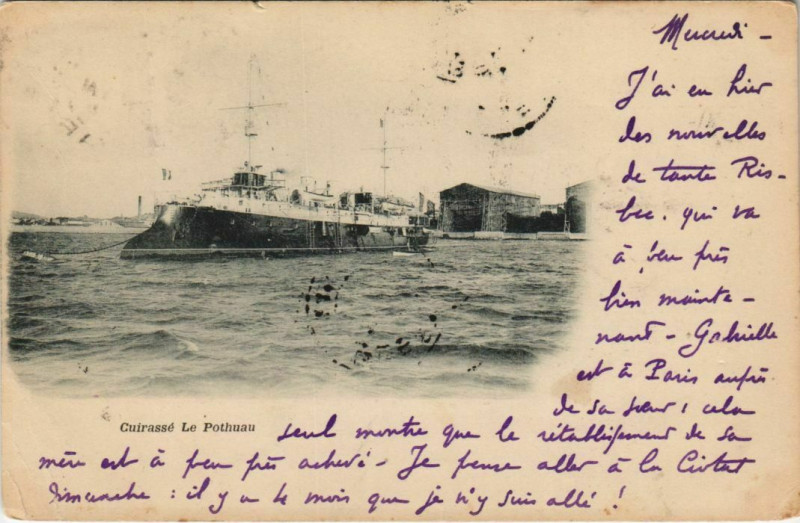 Mercredi -
J'ai eu hier
des nouvelles
de tante Ris-
bec. qui va
à peu près
bien mainte-
nant - Gabrielle
est à Paris auprès
de sa sœur ; cela
Cuirassé Le Pothuau
seul montre que le rétablissement de sa
mère est à peu près achevé - Je pense aller à la Ciotat
Dimanche : il y a le mois que je n'y suis allé !